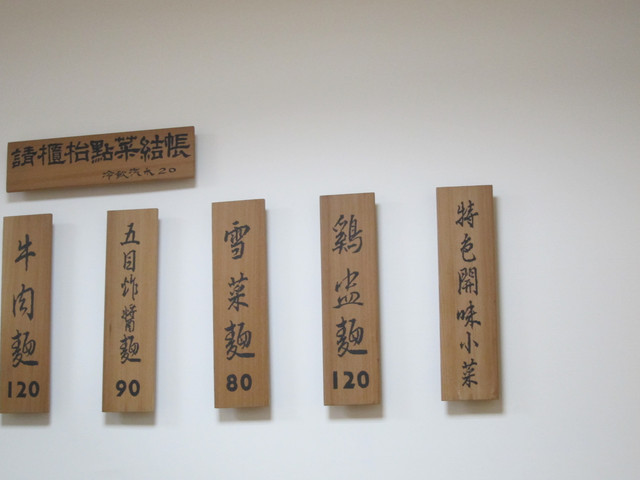 請櫃枱點菜結帳
冷飲汽水20
牛肉麵
120
五目炸醬麵
90
雪菜麵
80
鷄盅麵
120
特色開味小菜